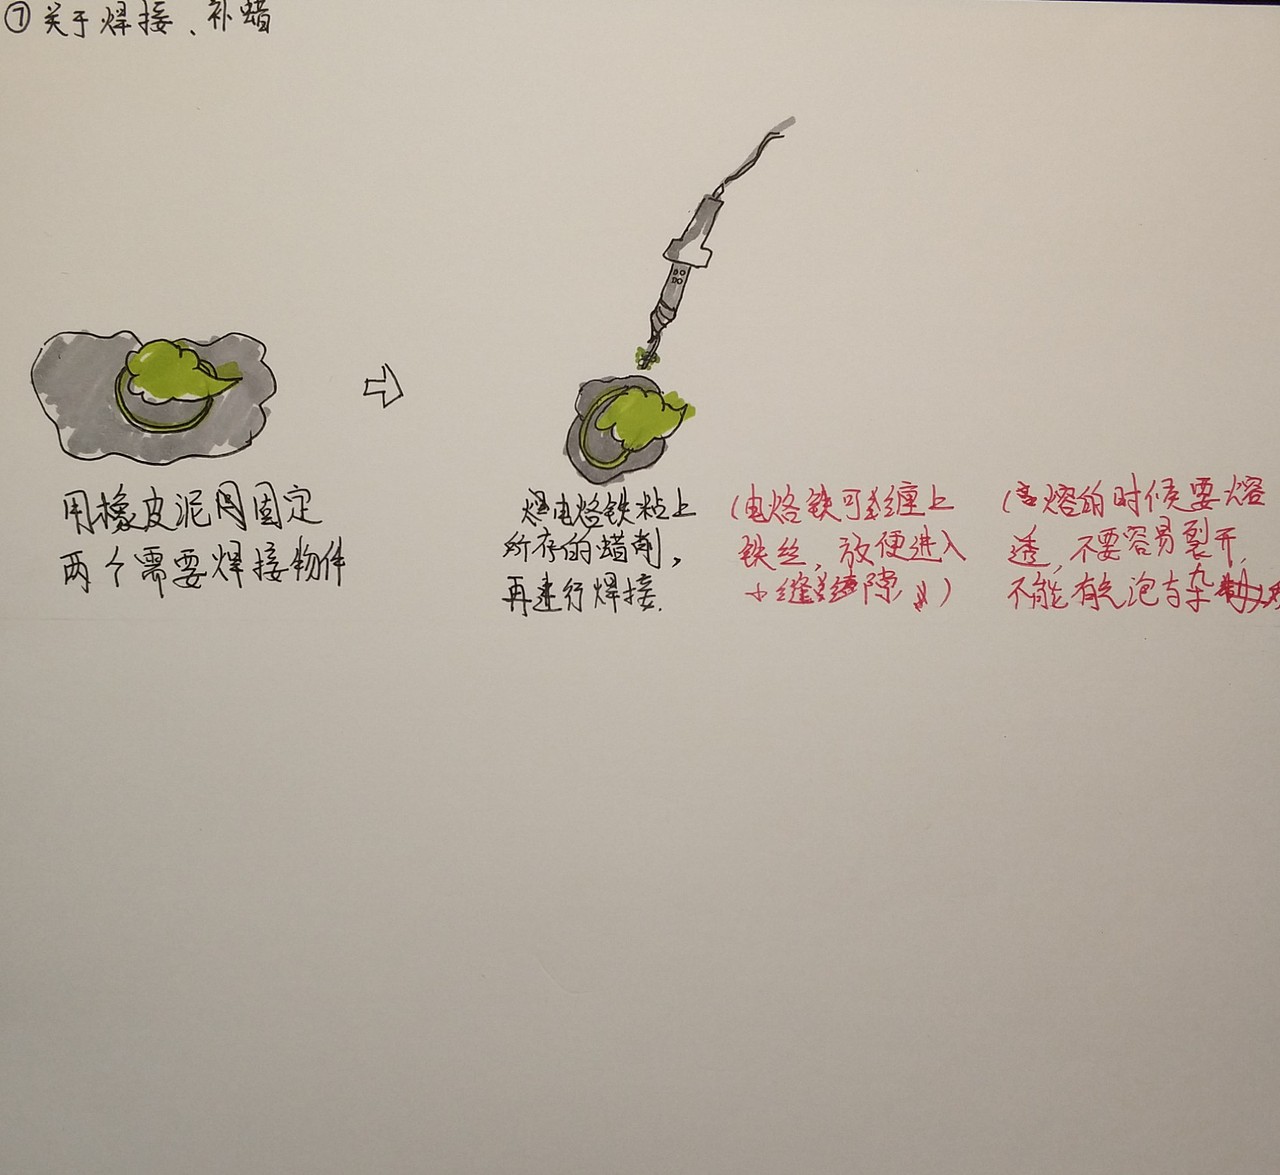 ⑦关于焊接、补蜡
用橡皮泥固定
两个需要焊接物件
电烙铁粘上
所存的蜡削,
再进行焊接.
(电烙铁可缠上
铁丝,放便进入
小缝隙)
(熔的时候要熔
透,不要容易裂开,
不能有气泡与杂